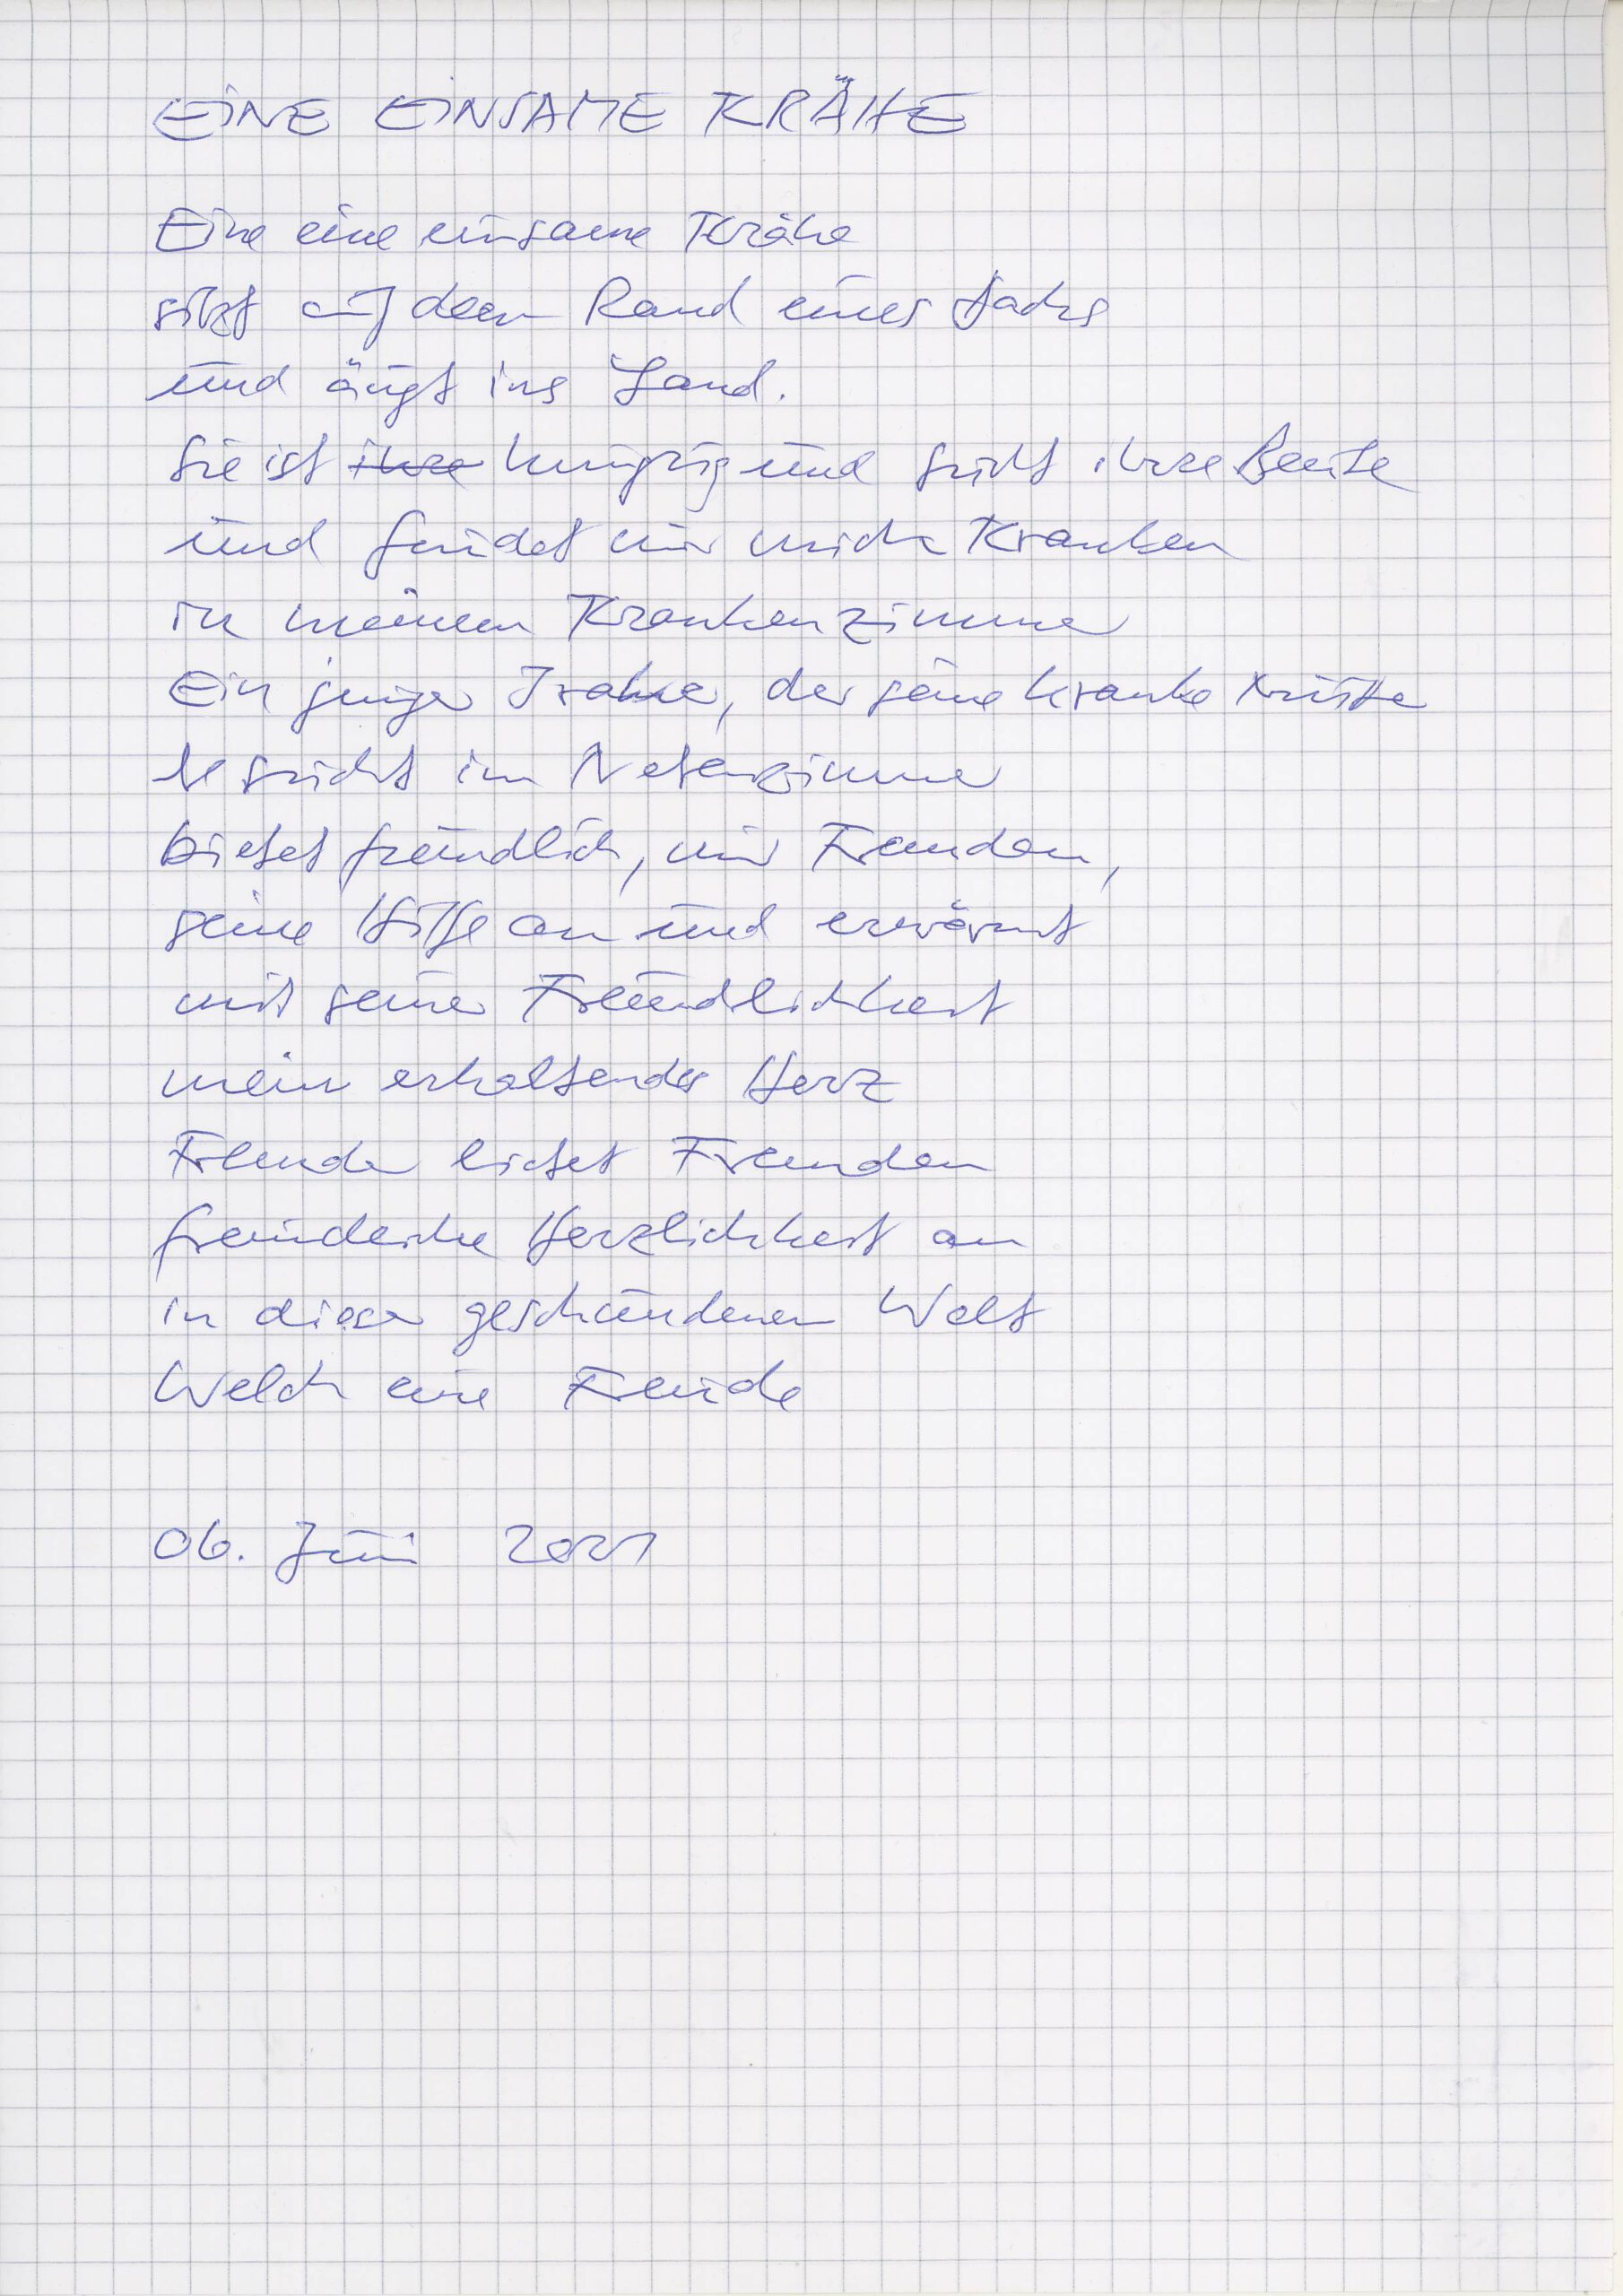 EINE EINSAME KRÄHE
Eine eine einsame Krähe
sitzt auf dem Rand eines Dachs
und äugt ins Land.
Sie ist ihre hungrig und sucht ihre Beute
und findet nur mich Kranken
in meinem Krankenzimmer
Ein junger Iraker, der seine kranke Mutter
besucht im Nebenzimmer
bietet freundlich, mir Fremden,
seine Hilfe an und erwärmt
mit seiner Freundlichkeit
mein erkaltendes Herz
Fremder bietet Fremden
Herzlichkeit an
in dieser geschundenen Welt
Welch eine Freude
06. Juni 2021